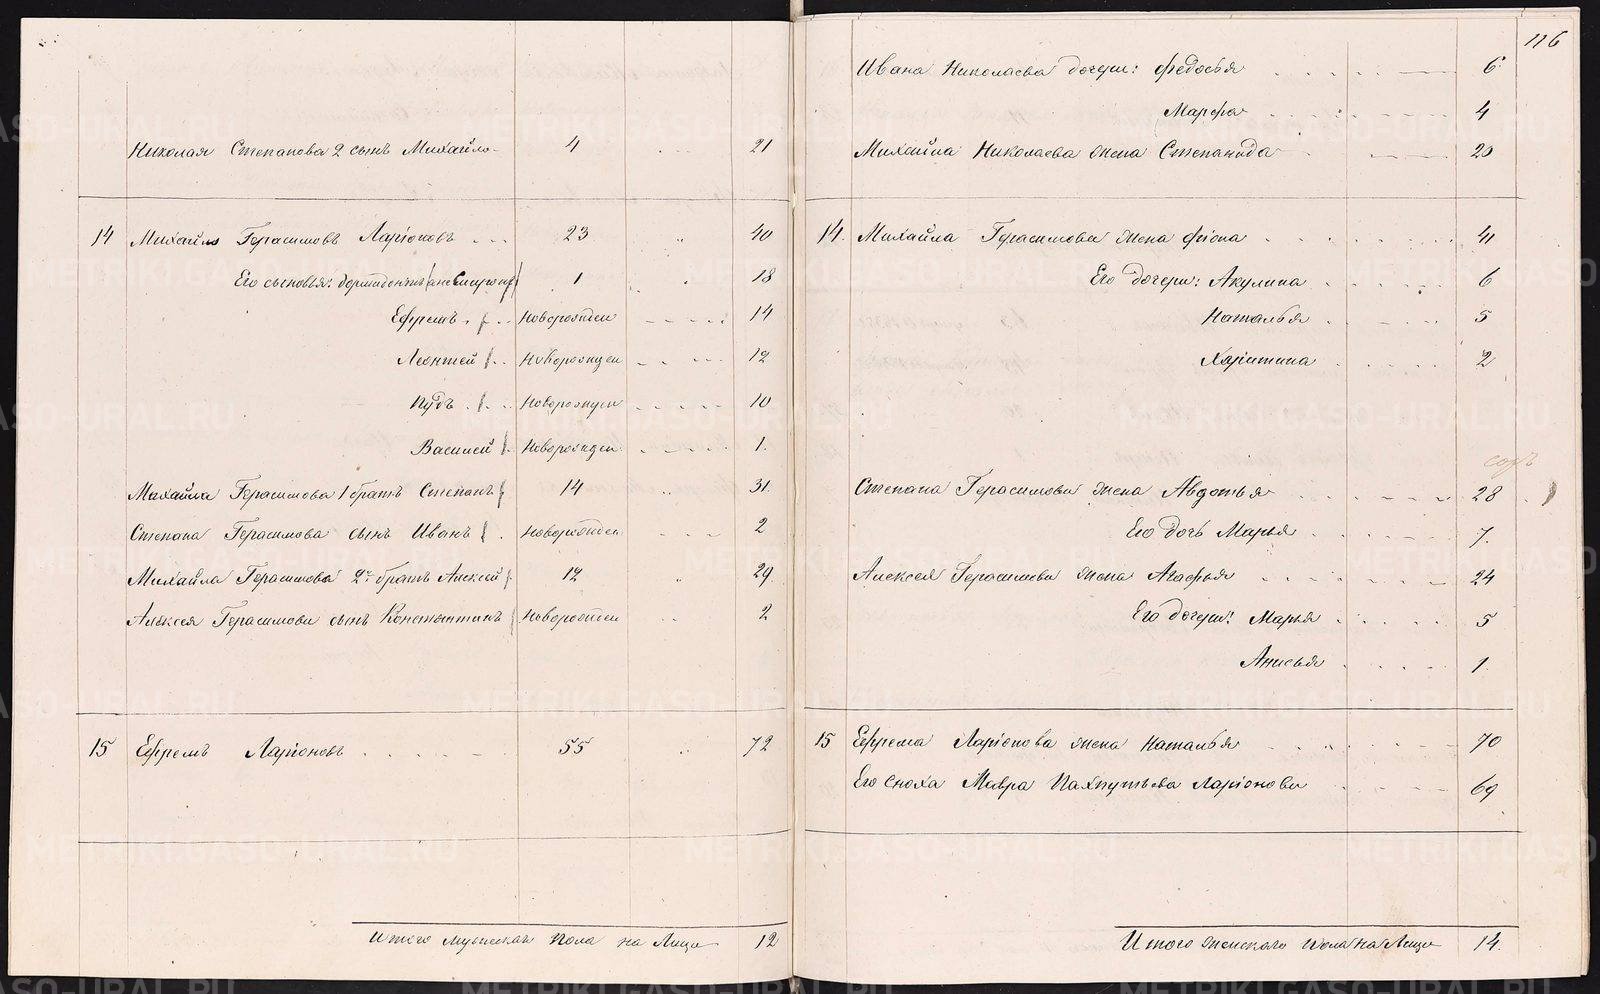 116
Николая Степанова 2 сынъ Михайло 4 21
14 Михайло Герасимовъ Ларіоновъ 23 40
Его сыновья: 1 18
Ефремъ Новорожден 14
Леонтей Новорожден 12
Пудъ Новорожден 10
Василей Новорожден 1.
Михайла Герасимова 1 братъ Степанъ 14 31.
Степана Герасимова сынъ Иванъ Новорожден 2
Михайла Герасимова 2й братъ Алексей 12 29.
Алексея Герасимова сынъ Констентинъ Новорожден 2
15 Ефремъ Ларіоновъ 55 72
Итого мужеска пола на Лицо 12
Ивана Николаева дочери: Федосья 6
Марфа 4
Михайла Николаева жена Степанида 20
14. Михайла Герасимова жена Фіона 41
Его дочери: Акулина 6
Наталья 5
Харитина 2
Степана Герасимова жена Авдотья 28
Его дочь Марья 7.
Алексея Герасимова жена Агафья 24
Его дочери: Марья 5
Анисья 1
15 Ефрема Ларіонова жена Наталья 70
Его сноха Мавра Пахнутьева Ларіонова 69
Итого женскаго пола на Лицо 14.
METRIKI.GASO-URAL.RU